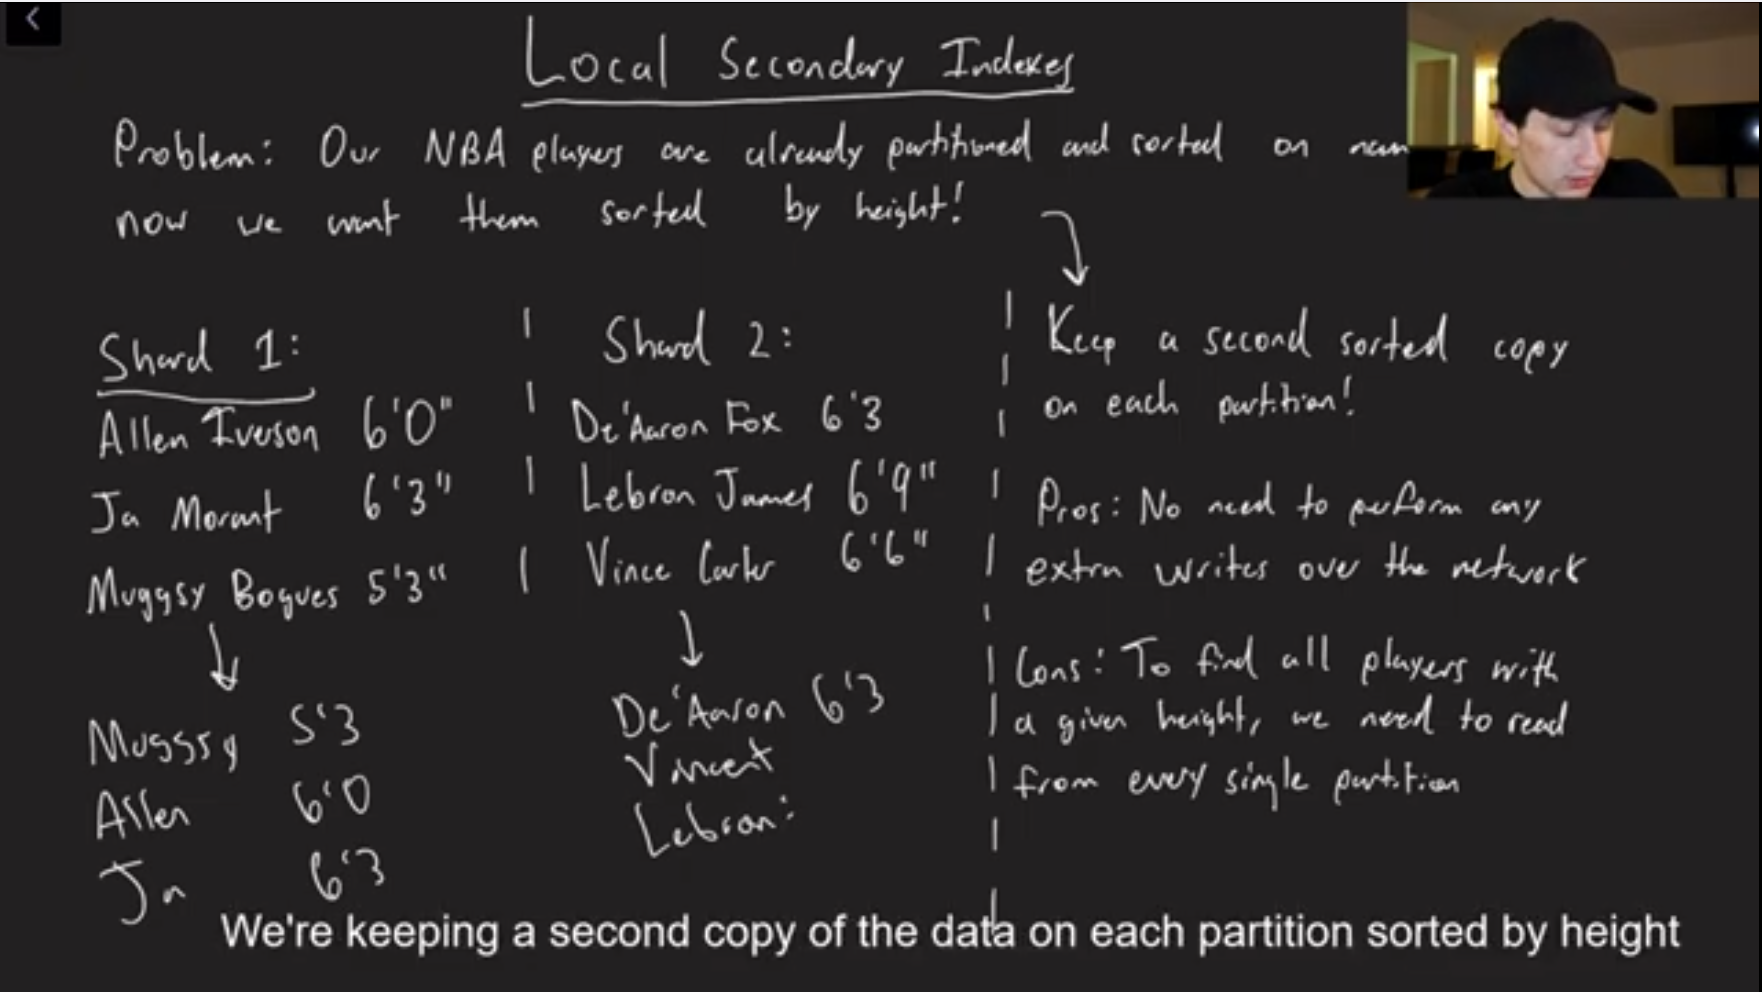 Local Secondary Indexes
Problem: Our NBA players are already partitioned and sorted on
now we want them sorted by height!
Shard 1:
Allen Iverson 6'0"
Ja Morant 6'3"
Muggsy Bogues 5'3"
Muggsy 5'3
Allen 6'0
Ja 6'3
Shard 2:
De'Aaron Fox 6'3
Lebron James 6'9"
Vince Carter 6'6"
De'Aaron 6'3
Vincent
Lebron:
Keep a second sorted copy
on each partition!
Pros: No need to perform any
extra writes over the network
Cons: To find all players with
a given height, we need to read
from every single partition
We're keeping a second copy of the data on each partition sorted by height